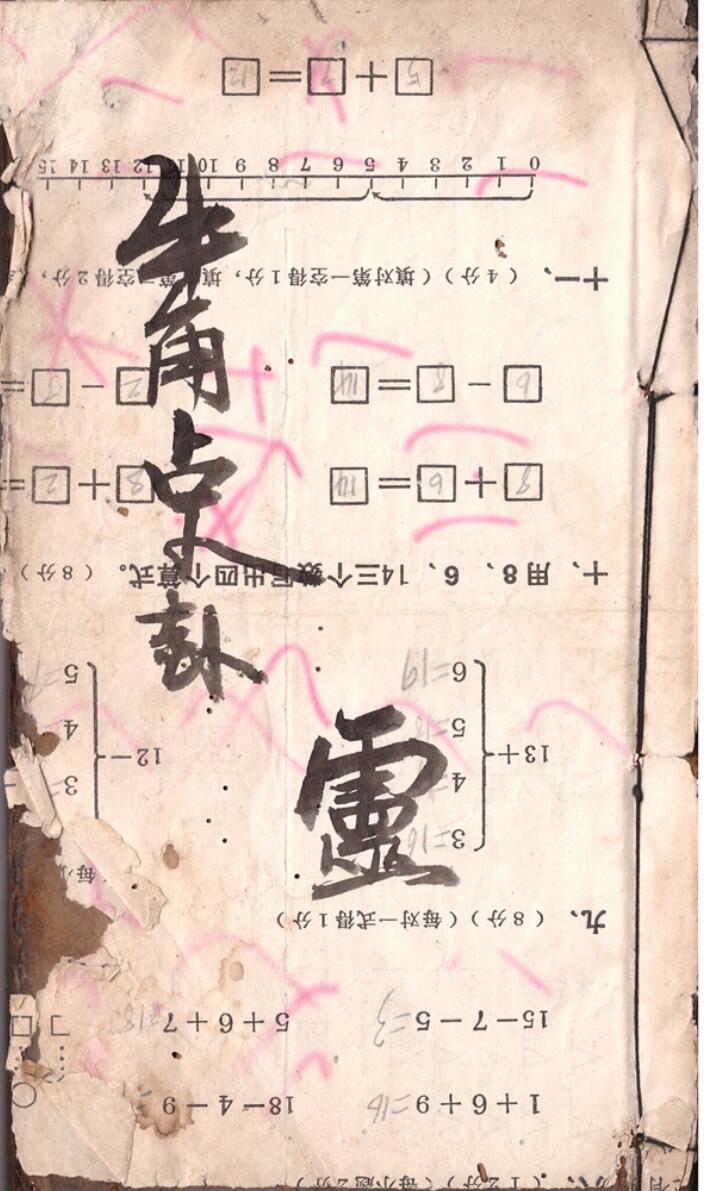 牛角占卦
靈
(12分)(每小题2分)
1+6+9=16 18-4-9=
15-7-5=3 5+6+7=18
九、(8分)(每对一式得1分) (每小
13+ 12-
3=16 3=
4= 4
5=18 5
6=19
十、用8、6、14三个数写出四个算式。(8分)
8+6=14 8+2=
6-8=14 2-3=
十一、(4分)(填对第一空得1分,填对第二空得2分,
0 1 2 3 4 5 6 7 8 9 10 11 12 13 14 15
5+7=12